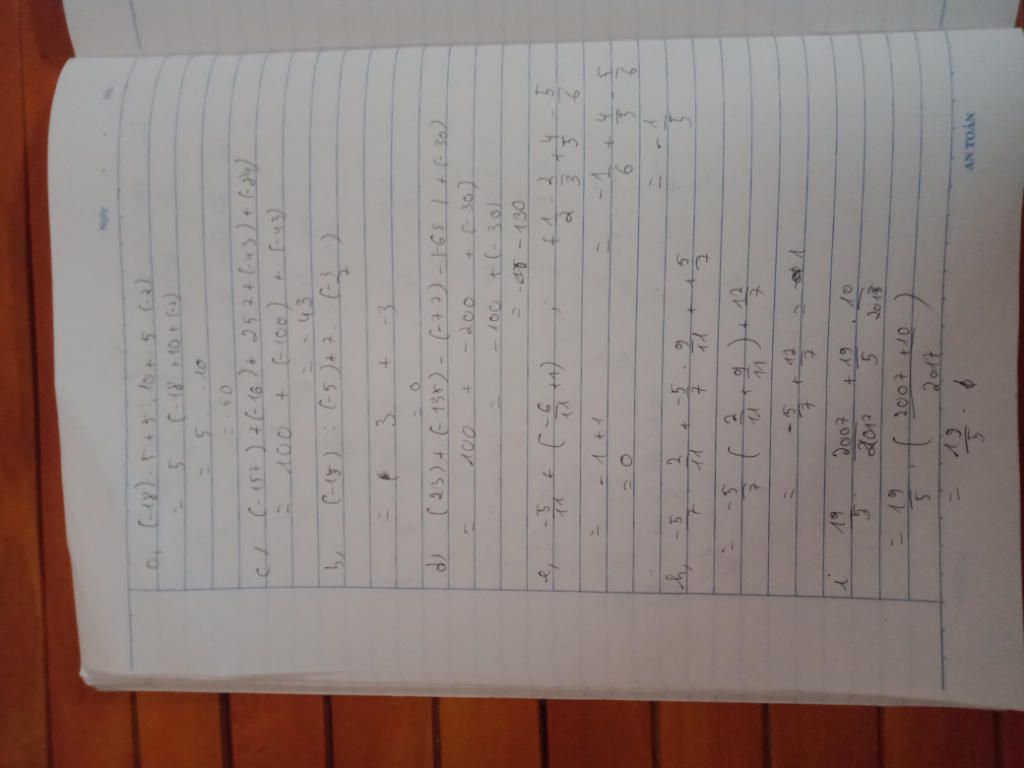 Ngày
a, (-18) . 5 + 5 . 10 + 5 (-2)
= 5 (-18 + 10 + (-2)
= 5 . 10
= -50
c, (-157) + (-16) + 257 + (-43) + (-84)
= 100 + (-100) + (-43)
= -43
b, (-15) : (-5) + 2 . (-3/2)
= 3 + -3
= 0
d) (23) + (-135) - (-77) - |-65| + (-30)
= 100 + -200 + (-30)
= -100 + (-30)
= -130
e, -5/11 + (-6/11 + 1) , f 1/2 - 2/3 + 4/3 - 5/6
= -1 + 1 = -1/6 + 4/3 - 5/6
= 0 = -1/3
h, -5/7 . 2/11 + -5/7 . 9/11 + 1 5/7
= -5/7 ( 2/11 + 9/11 ) + 12/7
= -5/7 + 12/7 = 1
i 19/5 . 2007/2017 + 19/5 . 10/2017
= 19/5 . ( 2007 + 10 / 2017 )
= 19/5 .
AN TOÀN